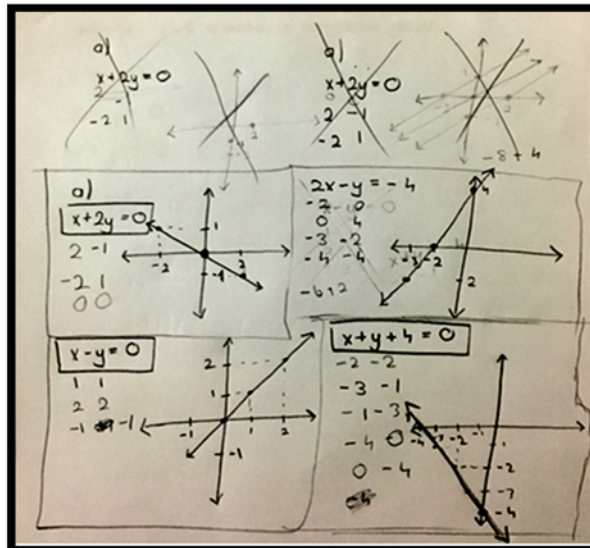 a)
x+2y=0
2 -
-2 1
a)
x+2y=0
0
2 -1
-2 1
-8+4
a)
x+2y=0
2 -1
-2 1
0 0
1
-2
2
-1
2x-y=-4
-2 0
0 4
-3 -2
-4 -4
-6+2
4
-3 -2
2
x-y=0
1 1
2 2
-1 -1
2
1
-1 1 2
-1
x+y+4=0
-2 -2
-3 -1
-1 -3
-4 0
0 -4
-4
-4 -3 -2 -1
1
-2
-4